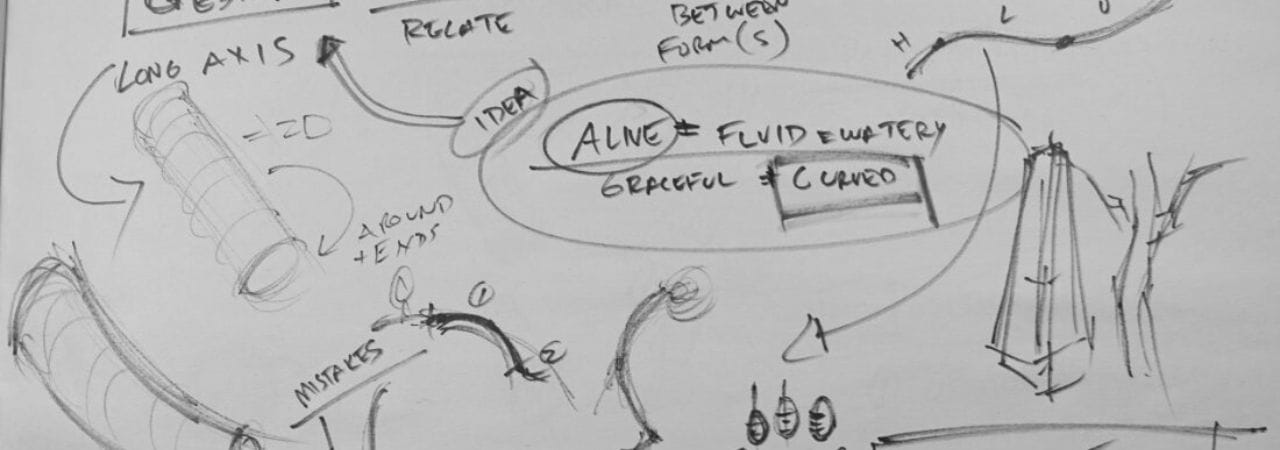 RELATE
BETWEEN
FORM(S)
H
L
LONG AXIS
IDEA
ALIVE = FLUID = WATERY
GRACEFUL = CURVED
AROUND
+ ENDS
1
2
MISTAKES